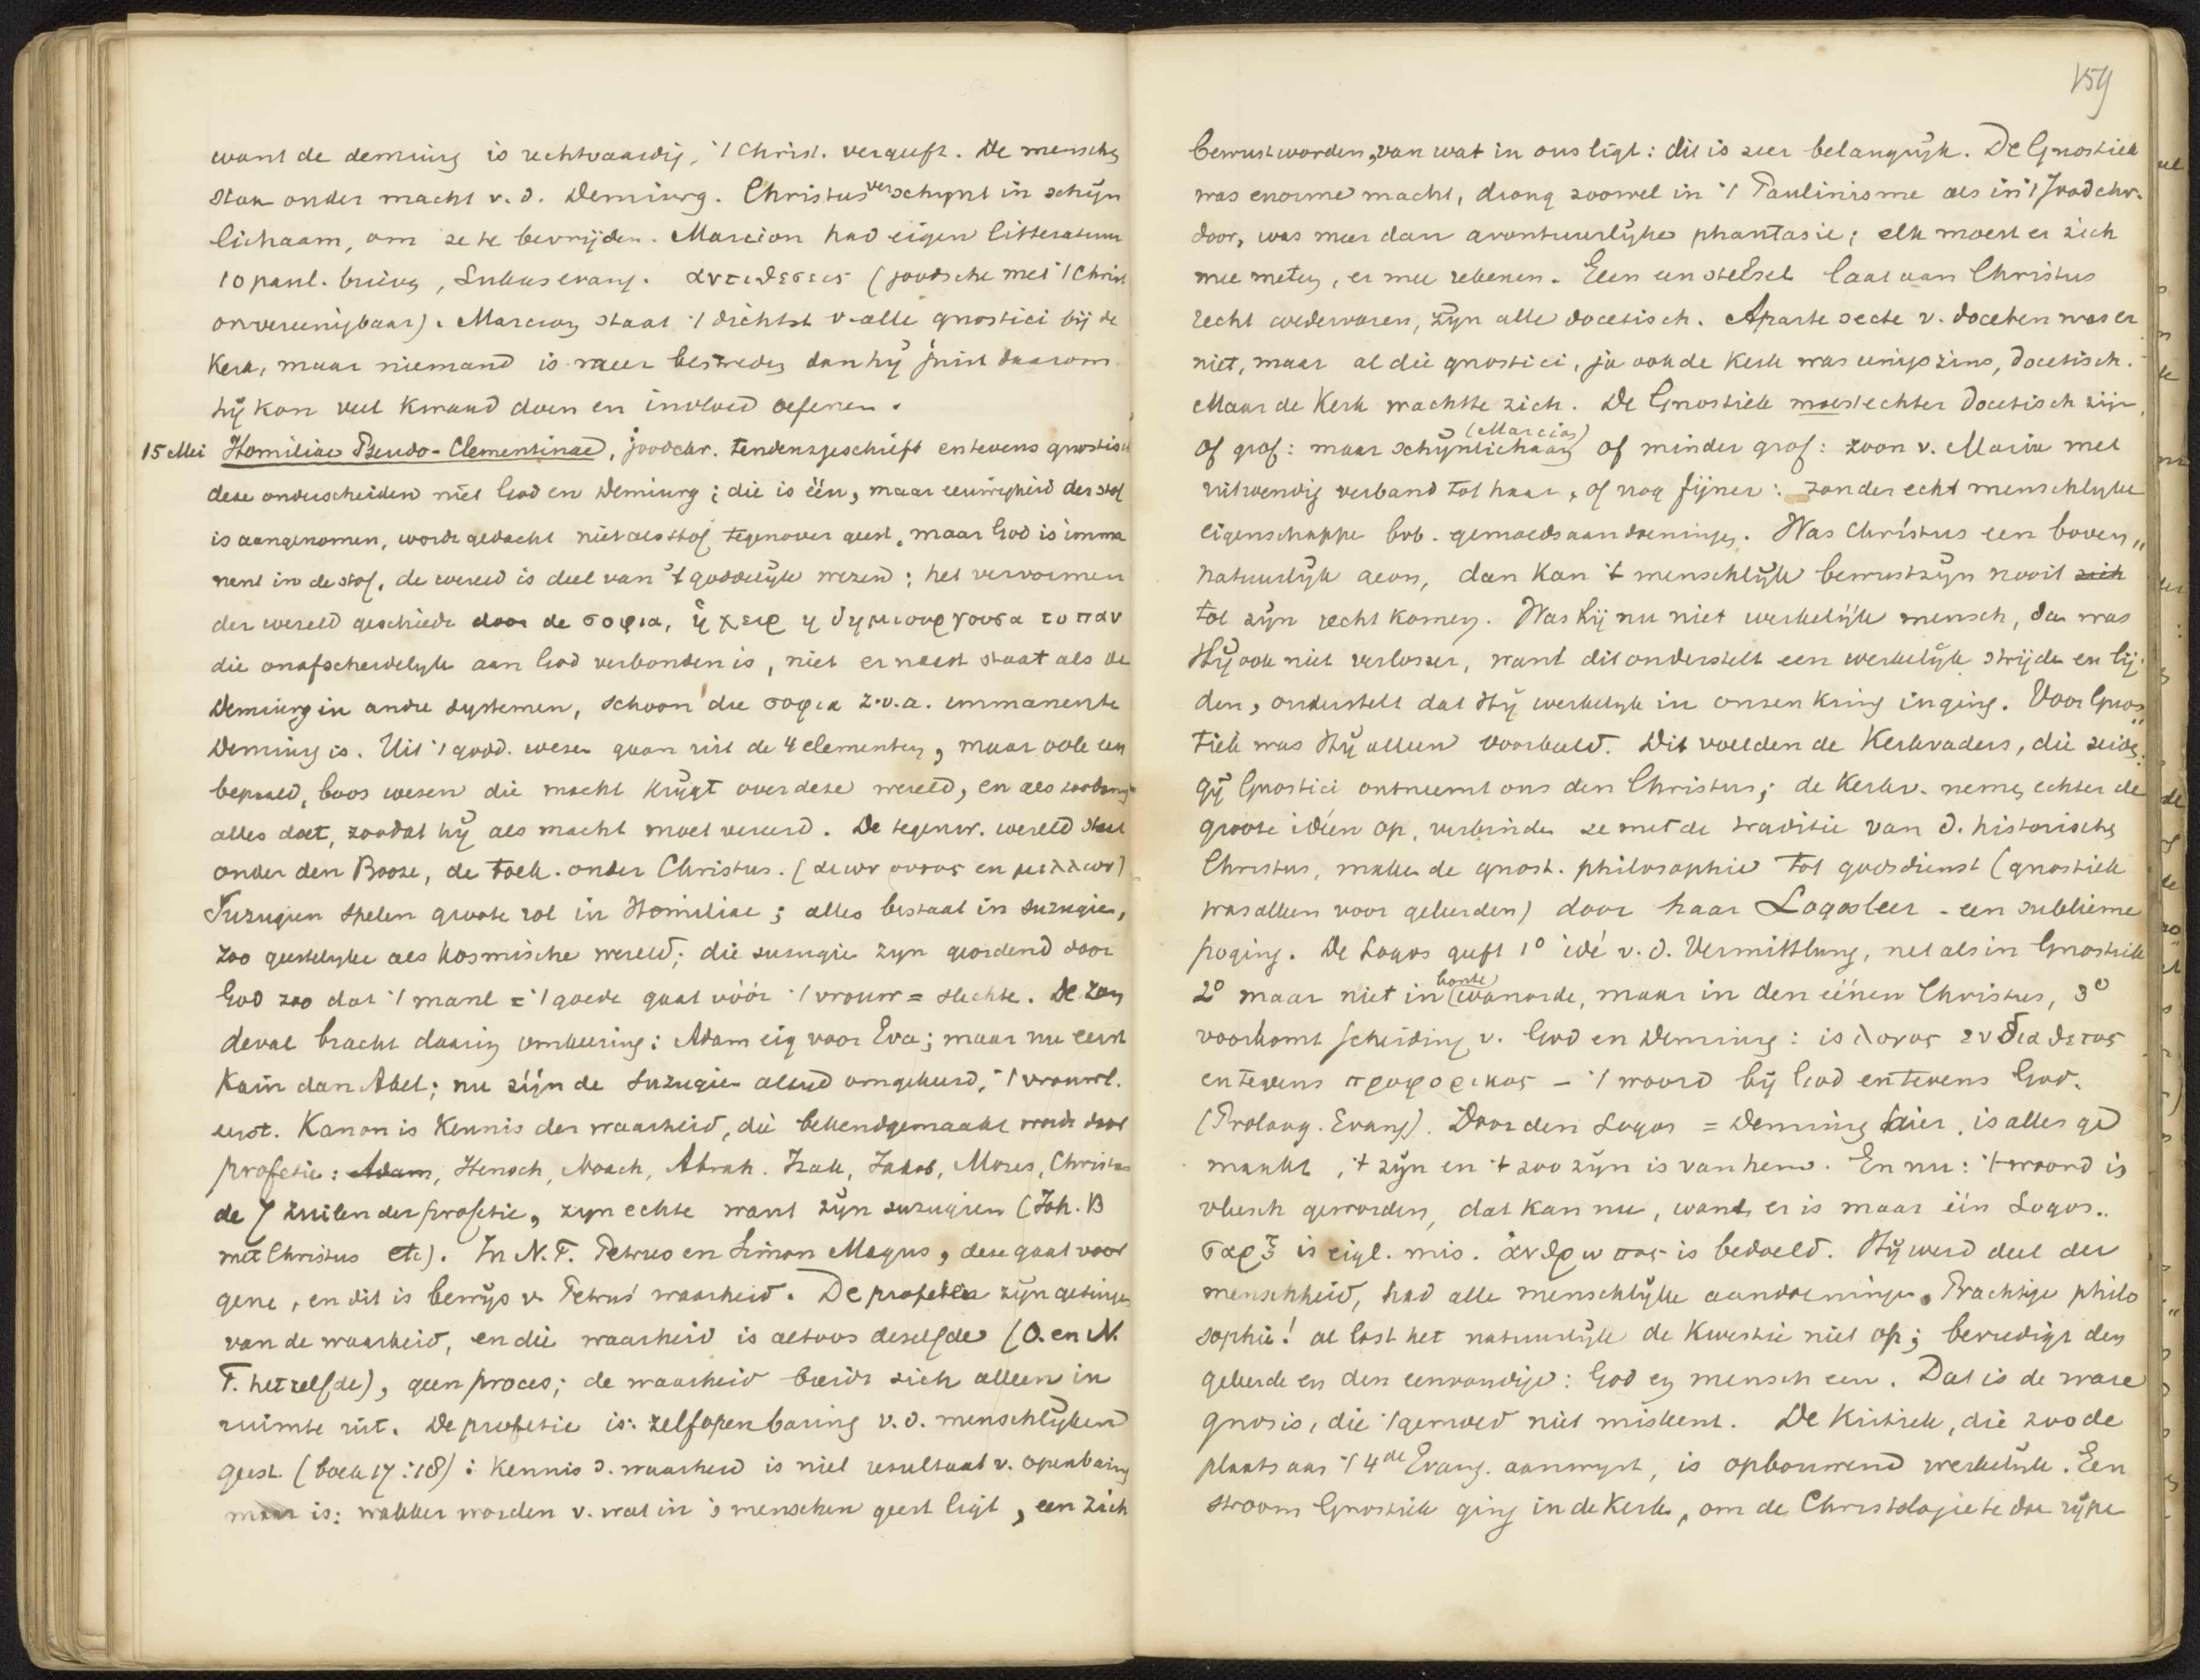 want de demiurg is rechtvaardig, 't Christ. vergeeft. De menschen
staan onder macht v. d. Demiurg. Christus verschynt in schijn
lichaam, om ze te bevrijden. Marcion had eigen litteratuur
10 paul. brieven, Lukasevang. αντιθεσεις (joodsche met 't Christ
onvereenigbaar). Marcion staat 't dichtst v. alle gnostici bij de
Kerk, maar niemand is meer bestreden dan hij juist daarom.
hij kon veel kwaad doen en invloed oefenen.
15 Mei Homiliae Pseudo-Clementinae, joodchr. tendenzgeschrift en tevens gnostisch
deze onderscheiden niet God en Demiurg; die is één, maar eeuwigheid der stof
is aangenomen, wordt gedacht niet als stof tegenover geest, maar God is imma
nent in de stof, de wereld is deel van 't goddelijk wezen; het vervormen
der wereld geschiedt door de σοφια, ἡ χειρ η δημιουργουσα το παν
die onafscheidelyk aan God verbonden is, niet er naast staat als de
Demiurg in andre systemen, schoon die σοφια z.v.a. immanente
Demiurg is. Uit 't godd. wezen gaan uit de 4 elementen, maar ook een
bepaald, boos wezen die macht krijgt over deze wereld, en als zoodanig
alles doet, zoodat hij als macht moet vereerd. De tegenw. wereld staat
onder den Booze, de toek. onder Christus. (αιων ουτος en μελλων)
Suzugien spelen groote rol in Homiliae; alles bestaat in suzugien,
zoo geestelyke als kosmische wereld; die suzugien zyn geordend door
God zoo dat 't manl = 't goede gaat vóór 't vrouw = slechte. De zon
deval bracht daarin omkeering: Adam eig voor Eva; maar nu eerst
Kaïn dan Abel; nu zijn de suzugien altijd omgekeerd, 't vrouwl.
eerst. Kanon is kennis der waarheid, die bekendgemaakt wordt door
profetie: Adam, Henoch, Noach, Abrah. Izak, Jakob, Mozes, Christus
de 7 zuilen der profetie, zyn echte want zijn suzugien (Joh. B
met Christus etc). In N.T. Petrus en Simon Magus, deze gaat voor
gene, en dit is bewijs v. Petrus' waarheid. De profeten zijn getuigen
van de waarheid, en die waarheid is altoos dezelfde (O. en N.
T. hetzelfde), geen proces; de waarheid breidt zich alleen in
ruimte uit. De profetie is: zelfopenbaring v. d. menschlijken
geest. (boek 17:18): kennis d. waarheid is niet resultaat v. openbaring
maar is: wakker worden v. wat in 's menschen geest ligt, een zich
159
bewustworden, van wat in ons ligt: dit is zeer belangrijk. De Gnostiek
was enorme macht, drong zoowel in 't Paulinisme als in 't Joodchr.
door, was meer dan avontuurlijke phantasie; elk moest er zich
mee meten, er mee rekenen. Geen een stelsel laat aan Christus
recht wedervaren, zijn alle docetisch. Aparte secte v. doceten was er
niet, maar al die gnostici, ja ook de Kerk was eenigszins, docetisch.
Maar de Kerk wachtte zich. De Gnostiek moest echter docetisch zijn,
of grof: maar schijnlichaam (Marcion) of minder grof: zoon v. Maria met
uitwendig verband tot haar, of nog fijner: zonder echt menschlijke
eigenschappe bvb. gemoedsaandoeningen. Was Christus een boven„
natuurlijk aeon, dan kan 't menschlijk bewustzijn nooit zich
tot zijn recht komen. Was hij nu niet werkelijk mensch, dan was
Hij ook niet verlosser, want dit onderstelt een werkelijk strijden en lij„
den, onderstelt dat Hij werkelijk in onzen kring inging. Voor Gnos„
tiek was Hij alleen voorbeeld. Dit voelden de Kerkvaders, die zeiden:
gij Gnostici ontneemt ons den Christus; de Kerkv. nemen echter de
groote ideën op, verbinden ze met de traditie van d. historischen
Christus, maken de gnost. philosophie tot godsdienst (gnostiek
was alleen voor geleerden) door haar Logosleer - een sublieme
poging. De Logos geeft 1° idé v. d. Vermittlung, net als in Gnostiek
2° maar niet in bonte wanorde, maar in den éénen Christus, 3°
voorkomt scheiding v. God en Demiurg: is λογος ενδιαθετος
en tevens προφορικος - 't woord bij God en tevens God.
(Proloog. Evang). Door den Logos = Demiurg hier, is alles ge
maakt, 't zijn en 't zoo zijn is van hem. En nu: 't woord is
vleesch geworden, dat kan nu, want er is maar één Logos..
σαρξ is eigl. mis. ἀνθρωπος is bedoeld. Hij werd deel der
menschheid, had alle menschlijke aandoeningen. Prachtige philo„
sophie! al lost het natuurlijk de kwestie niet op; bevredigt den
geleerde en den eenvoudige: God en mensch een. Dat is de ware
gnosis, die 't gemoed niet miskent. De Kritiek, die zoo de
plaats aan 't 4de Evang. aanwijst, is opbouwend werkelijk. Een
stroom Gnostiek ging in de Kerk, om de Christologie te doen rijpen